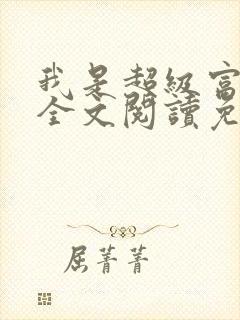 我是超級富
全文閱讀免
屈菁菁